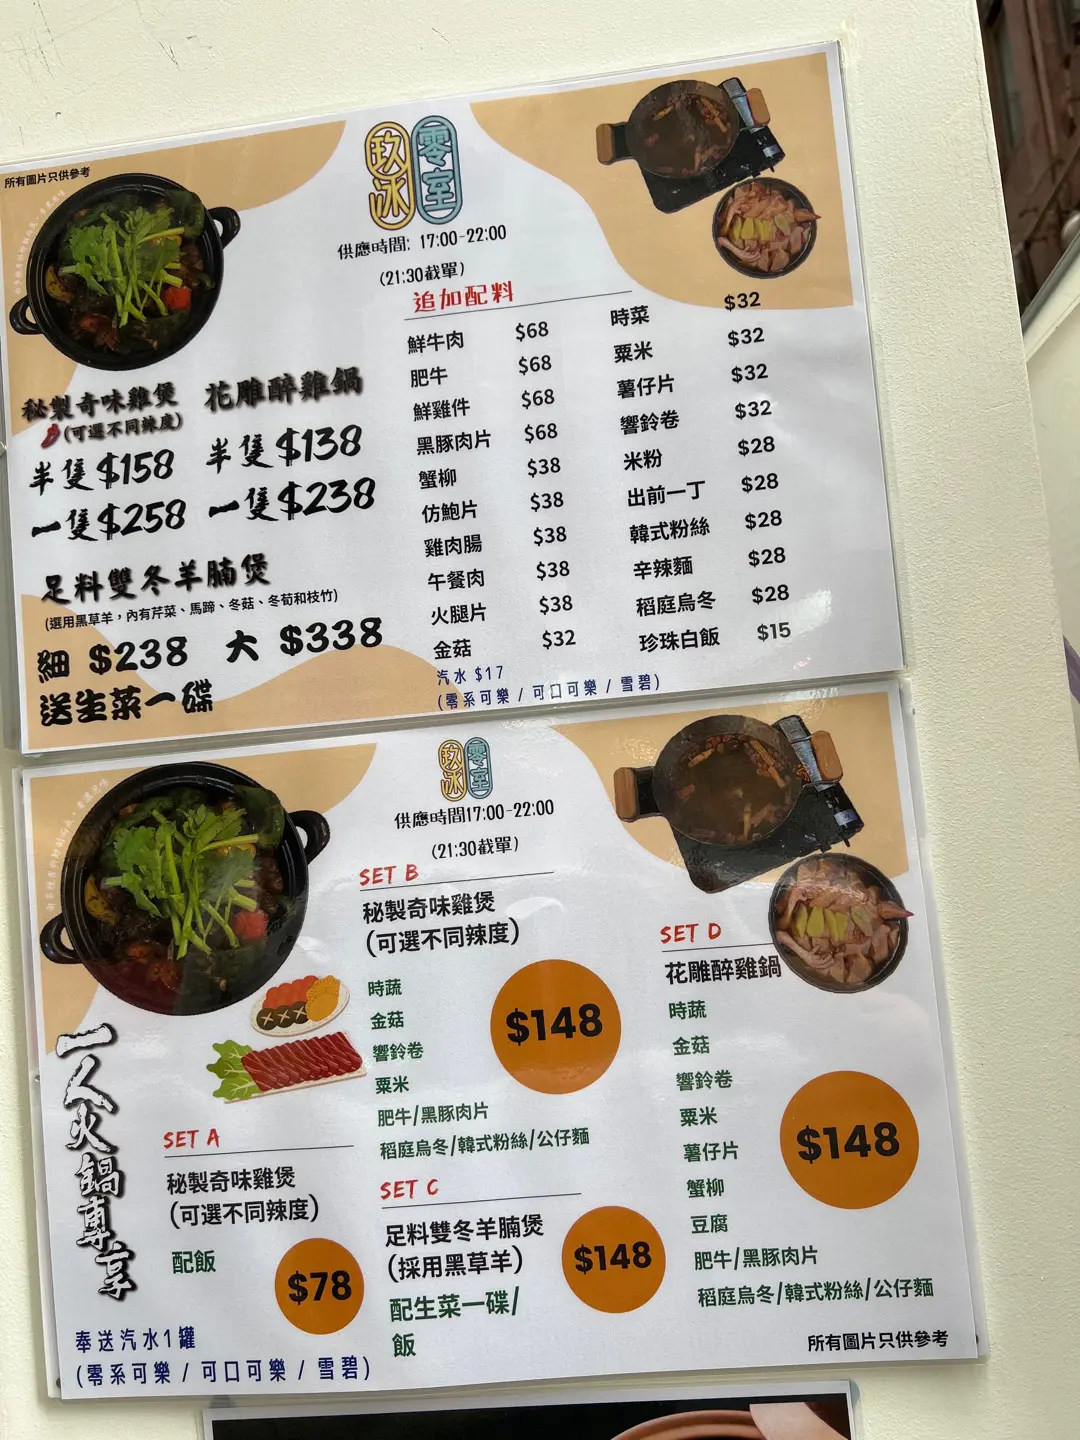 所有圖片只供參考
玖冰 零室
供應時間: 17:00-22:00
(21:30截單)
秘製奇味雞煲
(可選不同辣度)
半隻$158
一隻$258
花雕醉雞鍋
半隻$138
一隻$238
足料雙冬羊腩煲
(選用黑草羊，內有芹菜、馬蹄、冬菇、冬荀和枝竹)
細 $238 大 $338
送生菜一碟
追加配料
鮮牛肉 $68
肥牛 $68
鮮雞件 $68
黑豚肉片 $68
蟹柳 $38
仿鮑片 $38
雞肉腸 $38
午餐肉 $38
火腿片 $38
金菇 $32
時菜 $32
粟米 $32
薯仔片 $32
響鈴卷 $32
米粉 $28
出前一丁 $28
韓式粉絲 $28
辛辣麵 $28
稻庭烏冬 $28
珍珠白飯 $15
汽水 $17
(零系可樂 / 可口可樂 / 雪碧)
玖冰 零室
供應時間17:00-22:00
(21:30截單)
一人火鍋專享
SET A
秘製奇味雞煲
(可選不同辣度)
配飯
$78
SET B
秘製奇味雞煲
(可選不同辣度)
時蔬
金菇
響鈴卷
粟米
肥牛/黑豚肉片
稻庭烏冬/韓式粉絲/公仔麵
$148
SET C
足料雙冬羊腩煲
(採用黑草羊)
配生菜一碟/
飯
$148
SET D
花雕醉雞鍋
時蔬
金菇
響鈴卷
粟米
薯仔片
蟹柳
豆腐
肥牛/黑豚肉片
稻庭烏冬/韓式粉絲/公仔麵
$148
奉送汽水1罐
(零系可樂 / 可口可樂 / 雪碧)
所有圖片只供參考